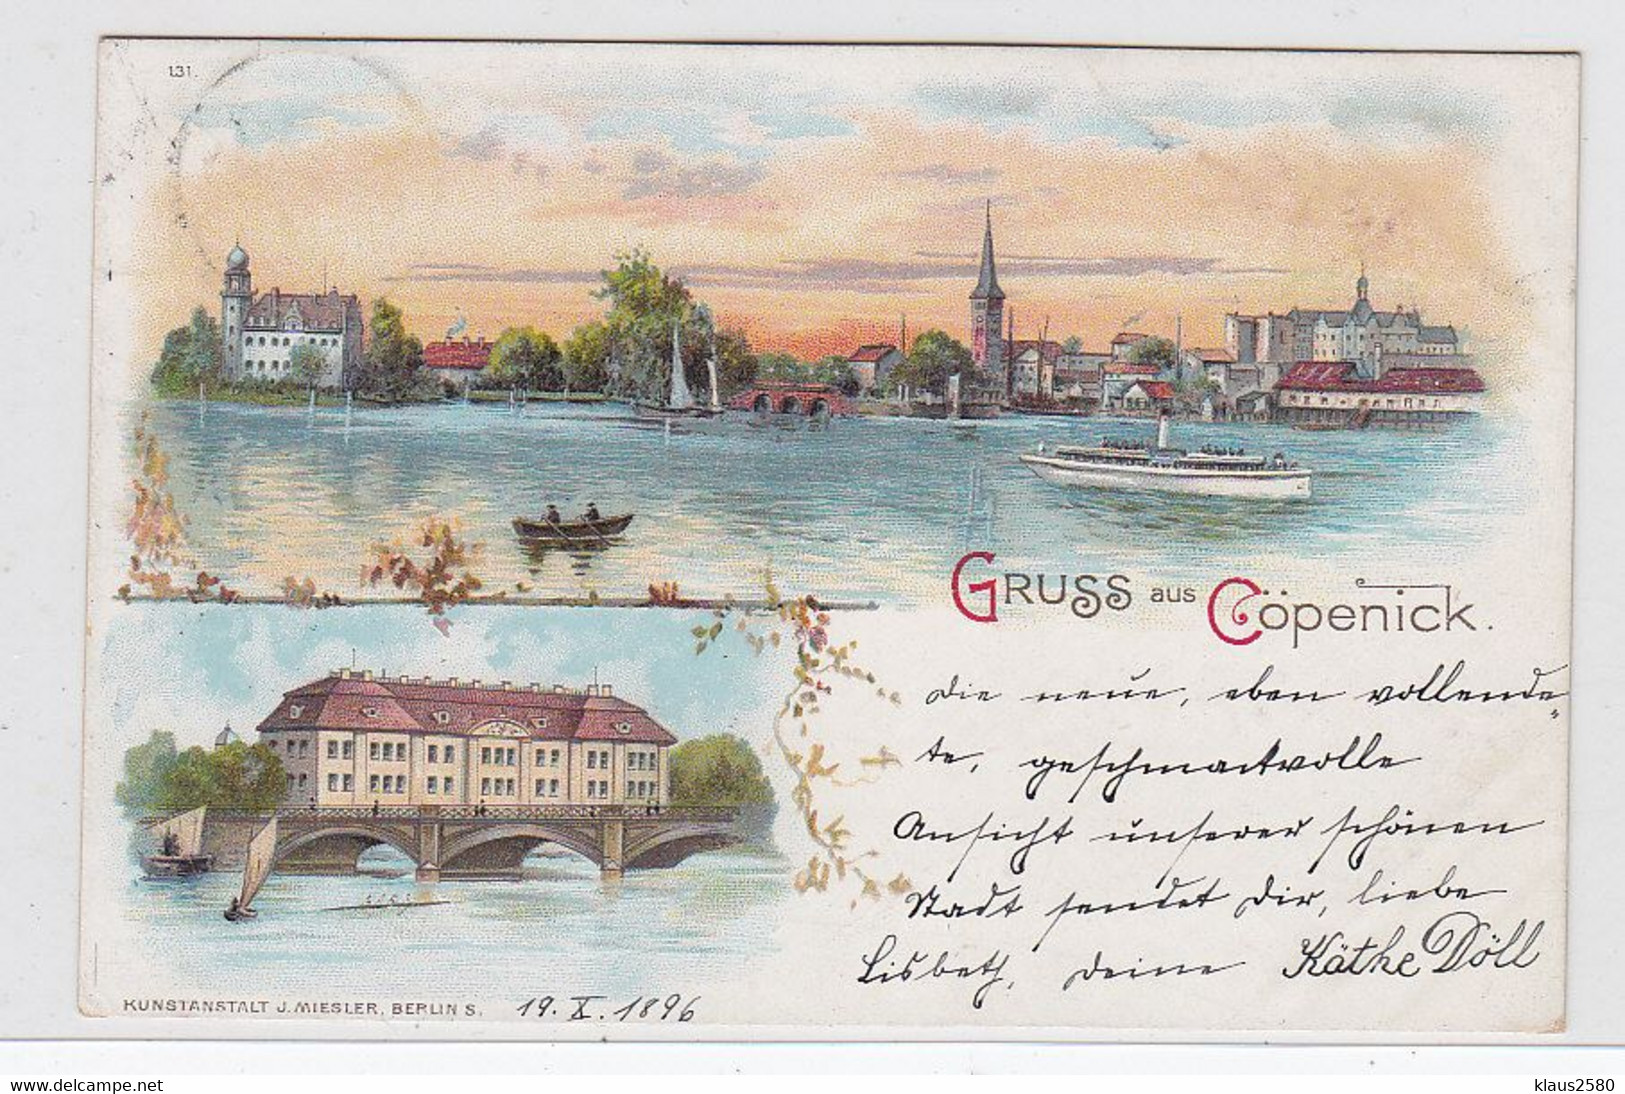 131.
GRUSS AUS Cöpenick.
Die neue, eben vollende„
te, geschmackvolle
Ansicht unserer schönen
Stadt sendet Dir, liebe
Lisbeth, Deine Käthe Döll
KUNSTANSTALT J. MIESLER, BERLIN S. 19. X. 1896
www.delcampe.net
klaus2580